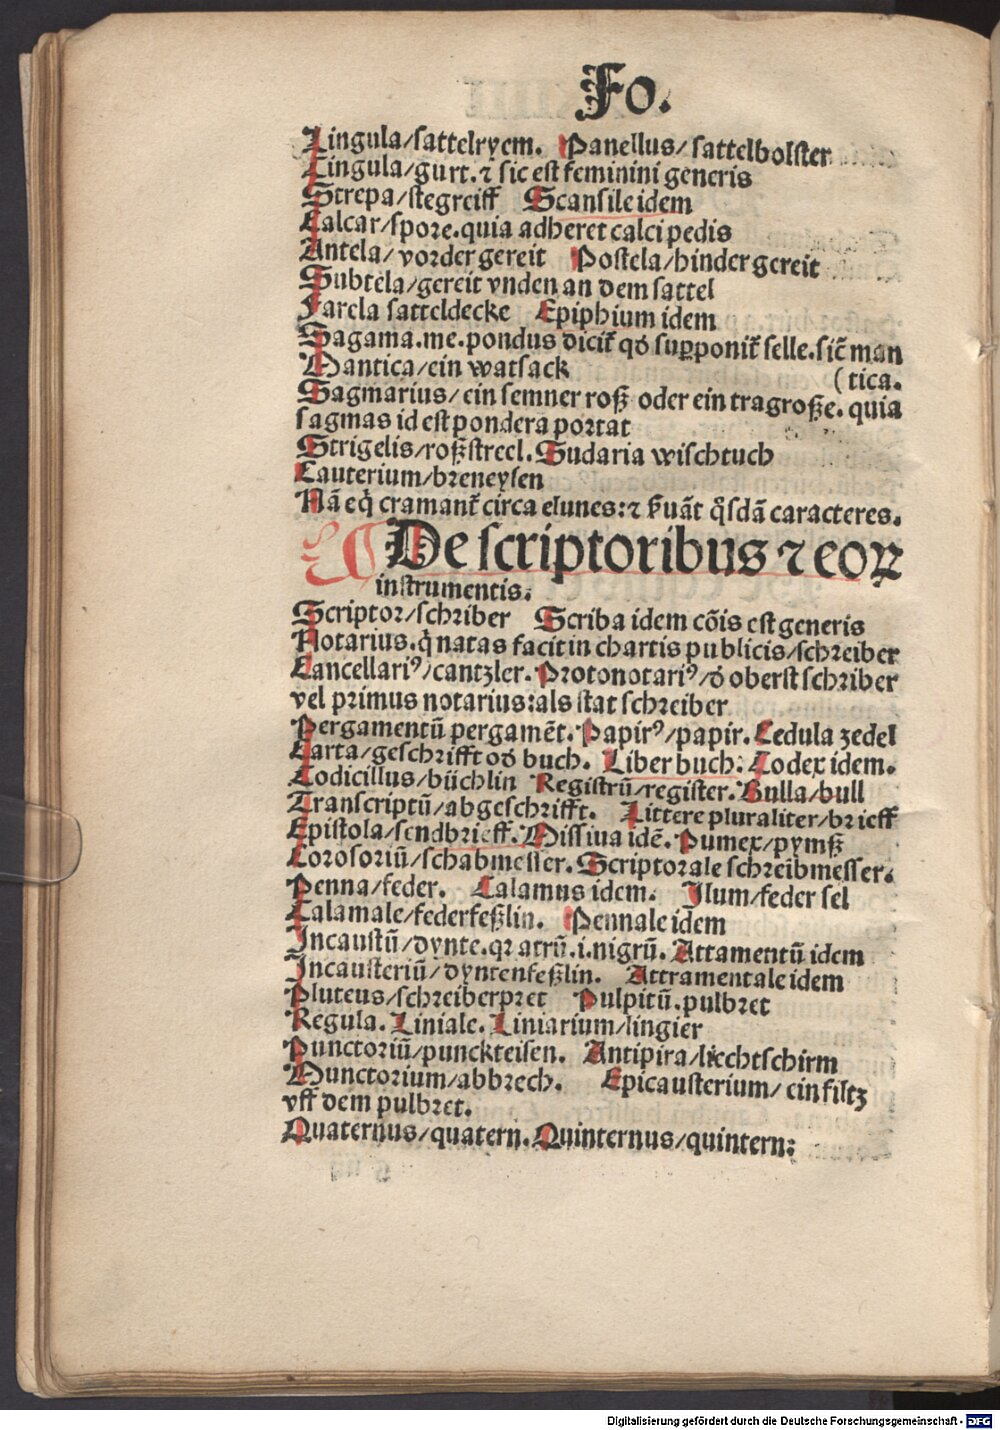 Fo.
Lingula/sattelryem. Panellus/sattelbolster
Cingula/gurt.⁊ sic est feminini generis
Strepa/stegreiff Scansile idem
Calcar/spore.quia adheret calci pedis
Antela/vorder gereit Postela/hinder gereit
Subtela/gereit vnden an dem sattel
Farela satteldecke Epiphium idem
Sagama.me.pondus dicit̃ qđ suꝑponit̃ selle.sic̃ man
Mantica/ein watsack (tica.
Sagmarius/ein semner roß oder ein tragroße.quia
sagmas id est pondera portat
Strigelis/roßstreel.Sudaria wischtuch
Cauterium/breneysen
Nã eq̇ cramant̃ circa clunes:⁊ ẜuãt q̊sdã caracteres.
De scriptoribus ⁊ eoꝝ
instrumentis.
Scriptor/schriber Scriba idem cõis est generis
Notarius.q̇ natas facit in chartis publicis/schreiber
Cancellariꝰ/cantzler.Protonotariꝰ/đ oberst schriber
vel primus notarius:als stat schreiber
Pergamentũ pergamẽt.Papirꝰ/papir.Cedula zedel
Carta/geschrifft ođ buch. Liber buch:Codex idem.
Codicillus/büchlin Registrũ/register.Bulla/bull
Transcriptũ/abgeschrifft. Littere pluraliter/brieff
Epistola/sendbrieff.Missiua idẽ.Pumex/pymß
Corosoriũ/schabmesser.Scriptorale schreibmesser.
Penna/feder. Calamus idem. Ilum/feder sel
Calamale/federfeßlin. Pennale idem
Incaustũ/dynte.qꝛ atrũ.i.nigrũ.Attamentũ idem
Incausteriũ/dyntenfeßlin. Attramentale idem
Pluteus/schreiberpret Pulpitũ.pulbret
Regula.Liniale.Liniarium/lingier
Punctoriũ/punckteisen. Antipira/liechtschirm
Munctorium/abbrech. Epicausterium/ein filtz
vff dem pulbret.
Quaternus/quatern.Quinternus/quintern:
Digitalisierung gefördert durch die Deutsche Forschungsgemeinschaft - DFG